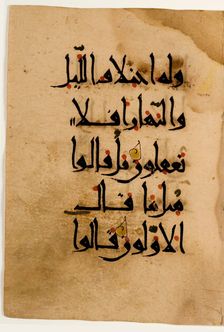 وله اختلاف الّيل
والنّهار افلا
تعقلون بل قالوا
مثل ما قال
الاولون قالوا